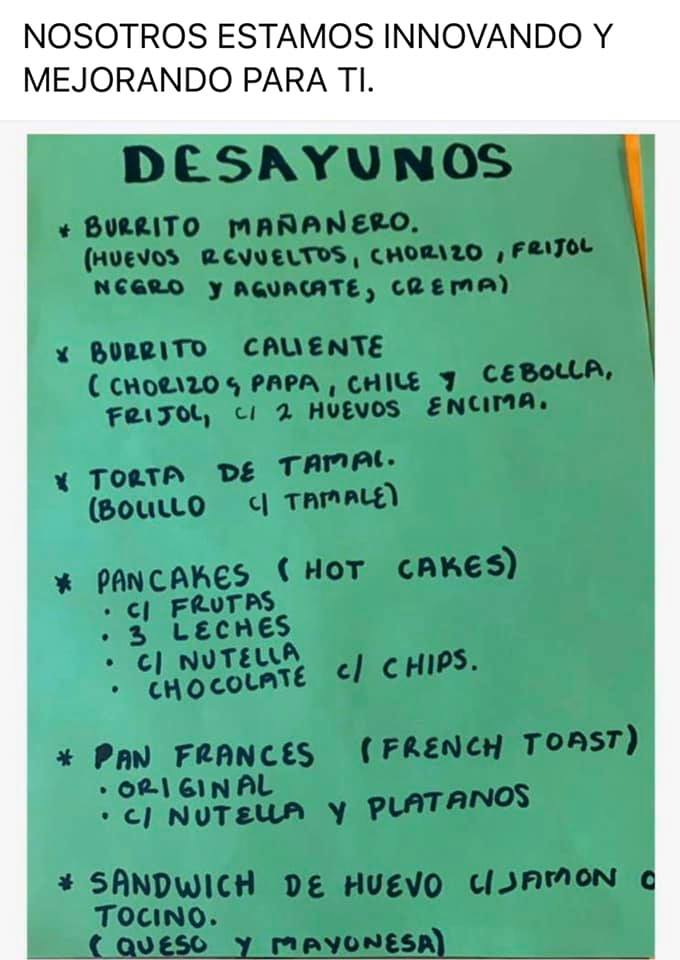 NOSOTROS ESTAMOS INNOVANDO Y
MEJORANDO PARA TI.
DESAYUNOS
* BURRITO MAÑANERO.
(HUEVOS REVUELTOS, CHORIZO, FRIJOL
NEGRO Y AGUACATE, CREMA)
* BURRITO CALIENTE
(CHORIZO y PAPA, CHILE y CEBOLLA,
FRIJOL, C/ 2 HUEVOS ENCIMA.
* TORTA DE TAMAL.
(BOLILLO C/ TAMALE)
* PANCAKES (HOT CAKES)
· C/ FRUTAS
· 3 LECHES
· C/ NUTELLA
· CHOCOLATE C/ CHIPS.
* PAN FRANCES (FRENCH TOAST)
· ORIGINAL
· C/ NUTELLA Y PLATANOS
* SANDWICH DE HUEVO C/JAMON O
TOCINO.
(QUESO Y MAYONESA)